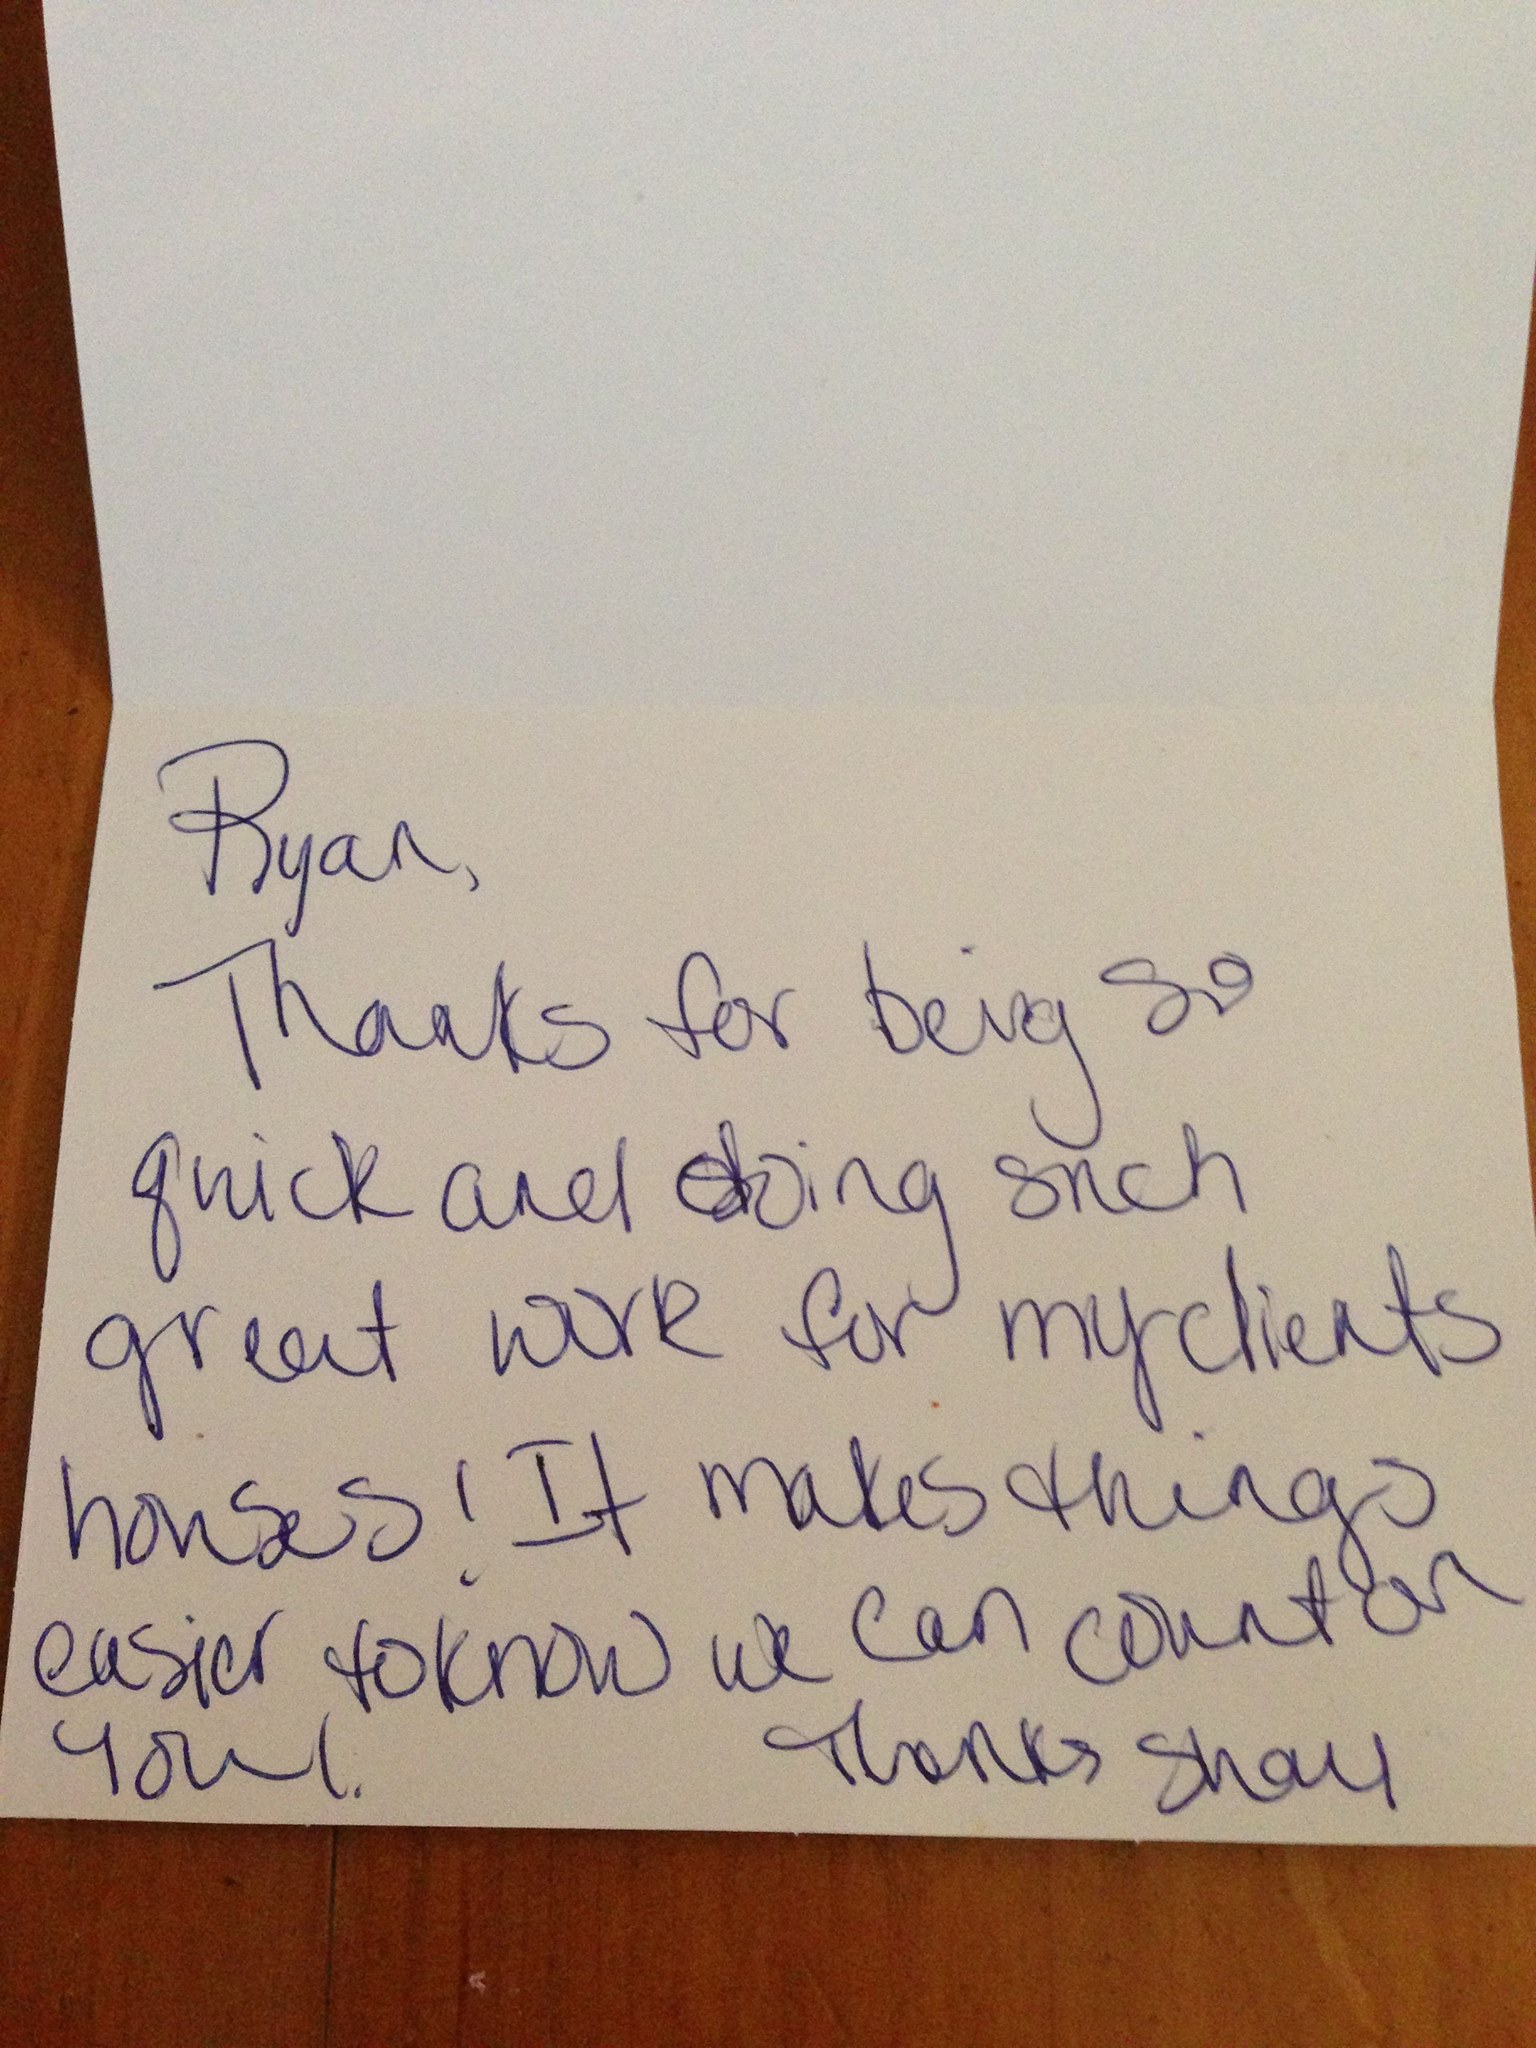 Ryan,
Thanks for being so
quick and doing such
great work for my clients
houses! It makes things
easier to know we can count on
you!. Thanks Shay